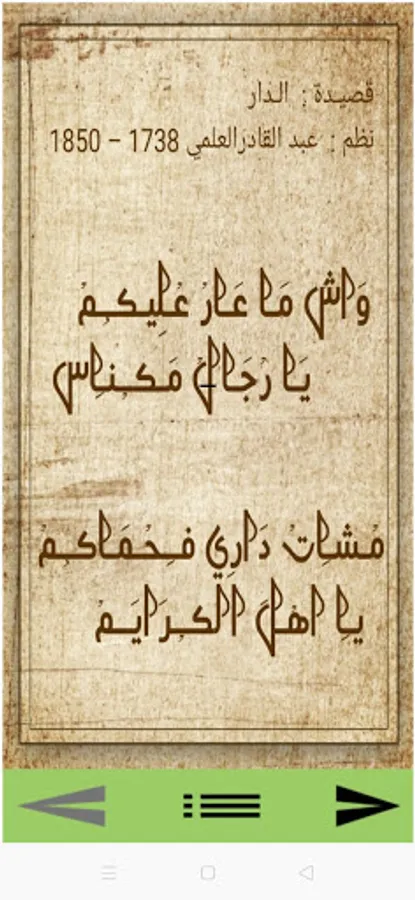 قصيدة : الدار
نظم : عبد القادرالعلمي 1738 – 1850
وَاشْ مَا عَارْ عْلِيكـُمْ
يَا رْجَالْ مَكـْنـَاسْ
مْشَاتْ دَارِي فـَحْمَاكـُمْ
يا اهْلَ الْكـْرَايَمْ